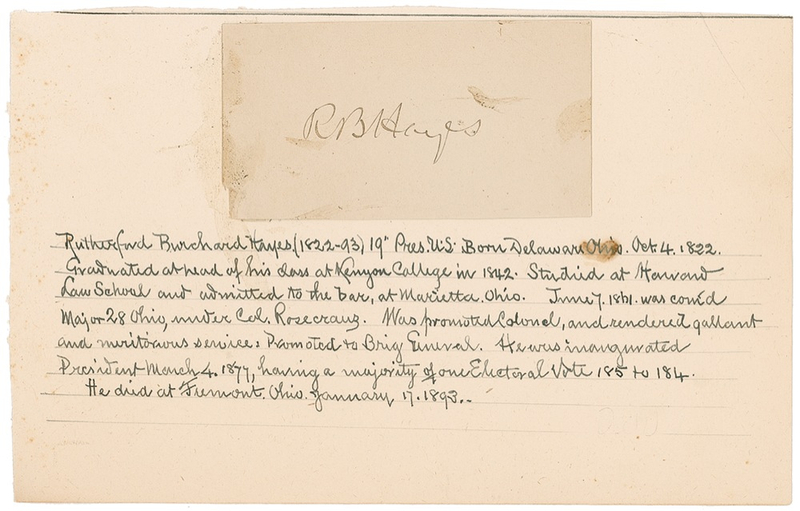 RBHayes
Rutherford Burchard Hayes, (1822-93) 19" Pres. U.S. Born Delaware Ohio. Oct. 4. 1822.
Graduated at head of his class at Kenyon College in 1842. Studied at Harvard
Law School and admitted to the bar, at Marietta. Ohio. June 7. 1861. was com'd
Major 28 Ohio, under Col. Rosecranz. Was promoted Colonel, and rendered gallant
and meritorous service: Promoted to Brig General. He was inaugurated
President March 4. 1877, having a majority of one Electoral Vote 185 to 184.
He died at Fremont. Ohio. January 17. 1893.-